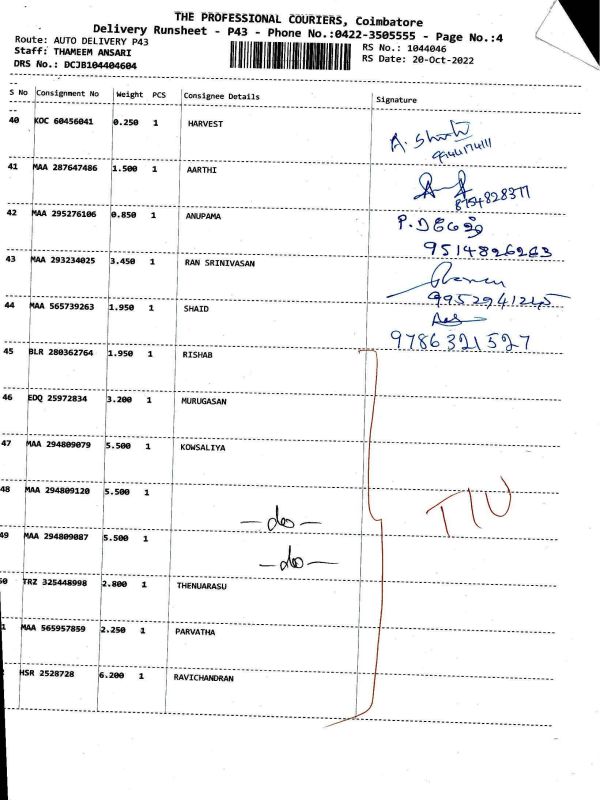 THE PROFESSIONAL COURIERS, Coimbatore
Delivery Runsheet - P43 - Phone No.:0422-3505555 - Page No.:4
Route: AUTO DELIVERY P43
RS No.: 1044046
Staff: THAMEEM ANSARI
RS Date: 20-Oct-2022
DRS No.: DCJB104404604
S No Consignment No Weight PCS Consignee Details Signature
40 KOC 60456041 0.250 1 HARVEST
41 MAA 287647486 1.500 1 AARTHI
8754828377
42 MAA 295276106 0.850 1 ANUPAMA
9514826263
43 MAA 293234025 3.450 1 RAN SRINIVASAN
44 MAA 565739263 1.950 1 SHAID
9786321527
45 BLR 280362764 1.950 1 RISHAB
46 EDQ 25972834 3.200 1 MURUGASAN
47 MAA 294809079 5.500 1 KOWSALIYA
48 MAA 294809120 5.500 1 -do-
49 MAA 294809087 5.500 1 -do-
50 TRZ 325448998 2.800 1 THENUARASU
1 MAA 565957859 2.250 1 PARVATHA
HSR 2528728 6.200 1 RAVICHANDRAN